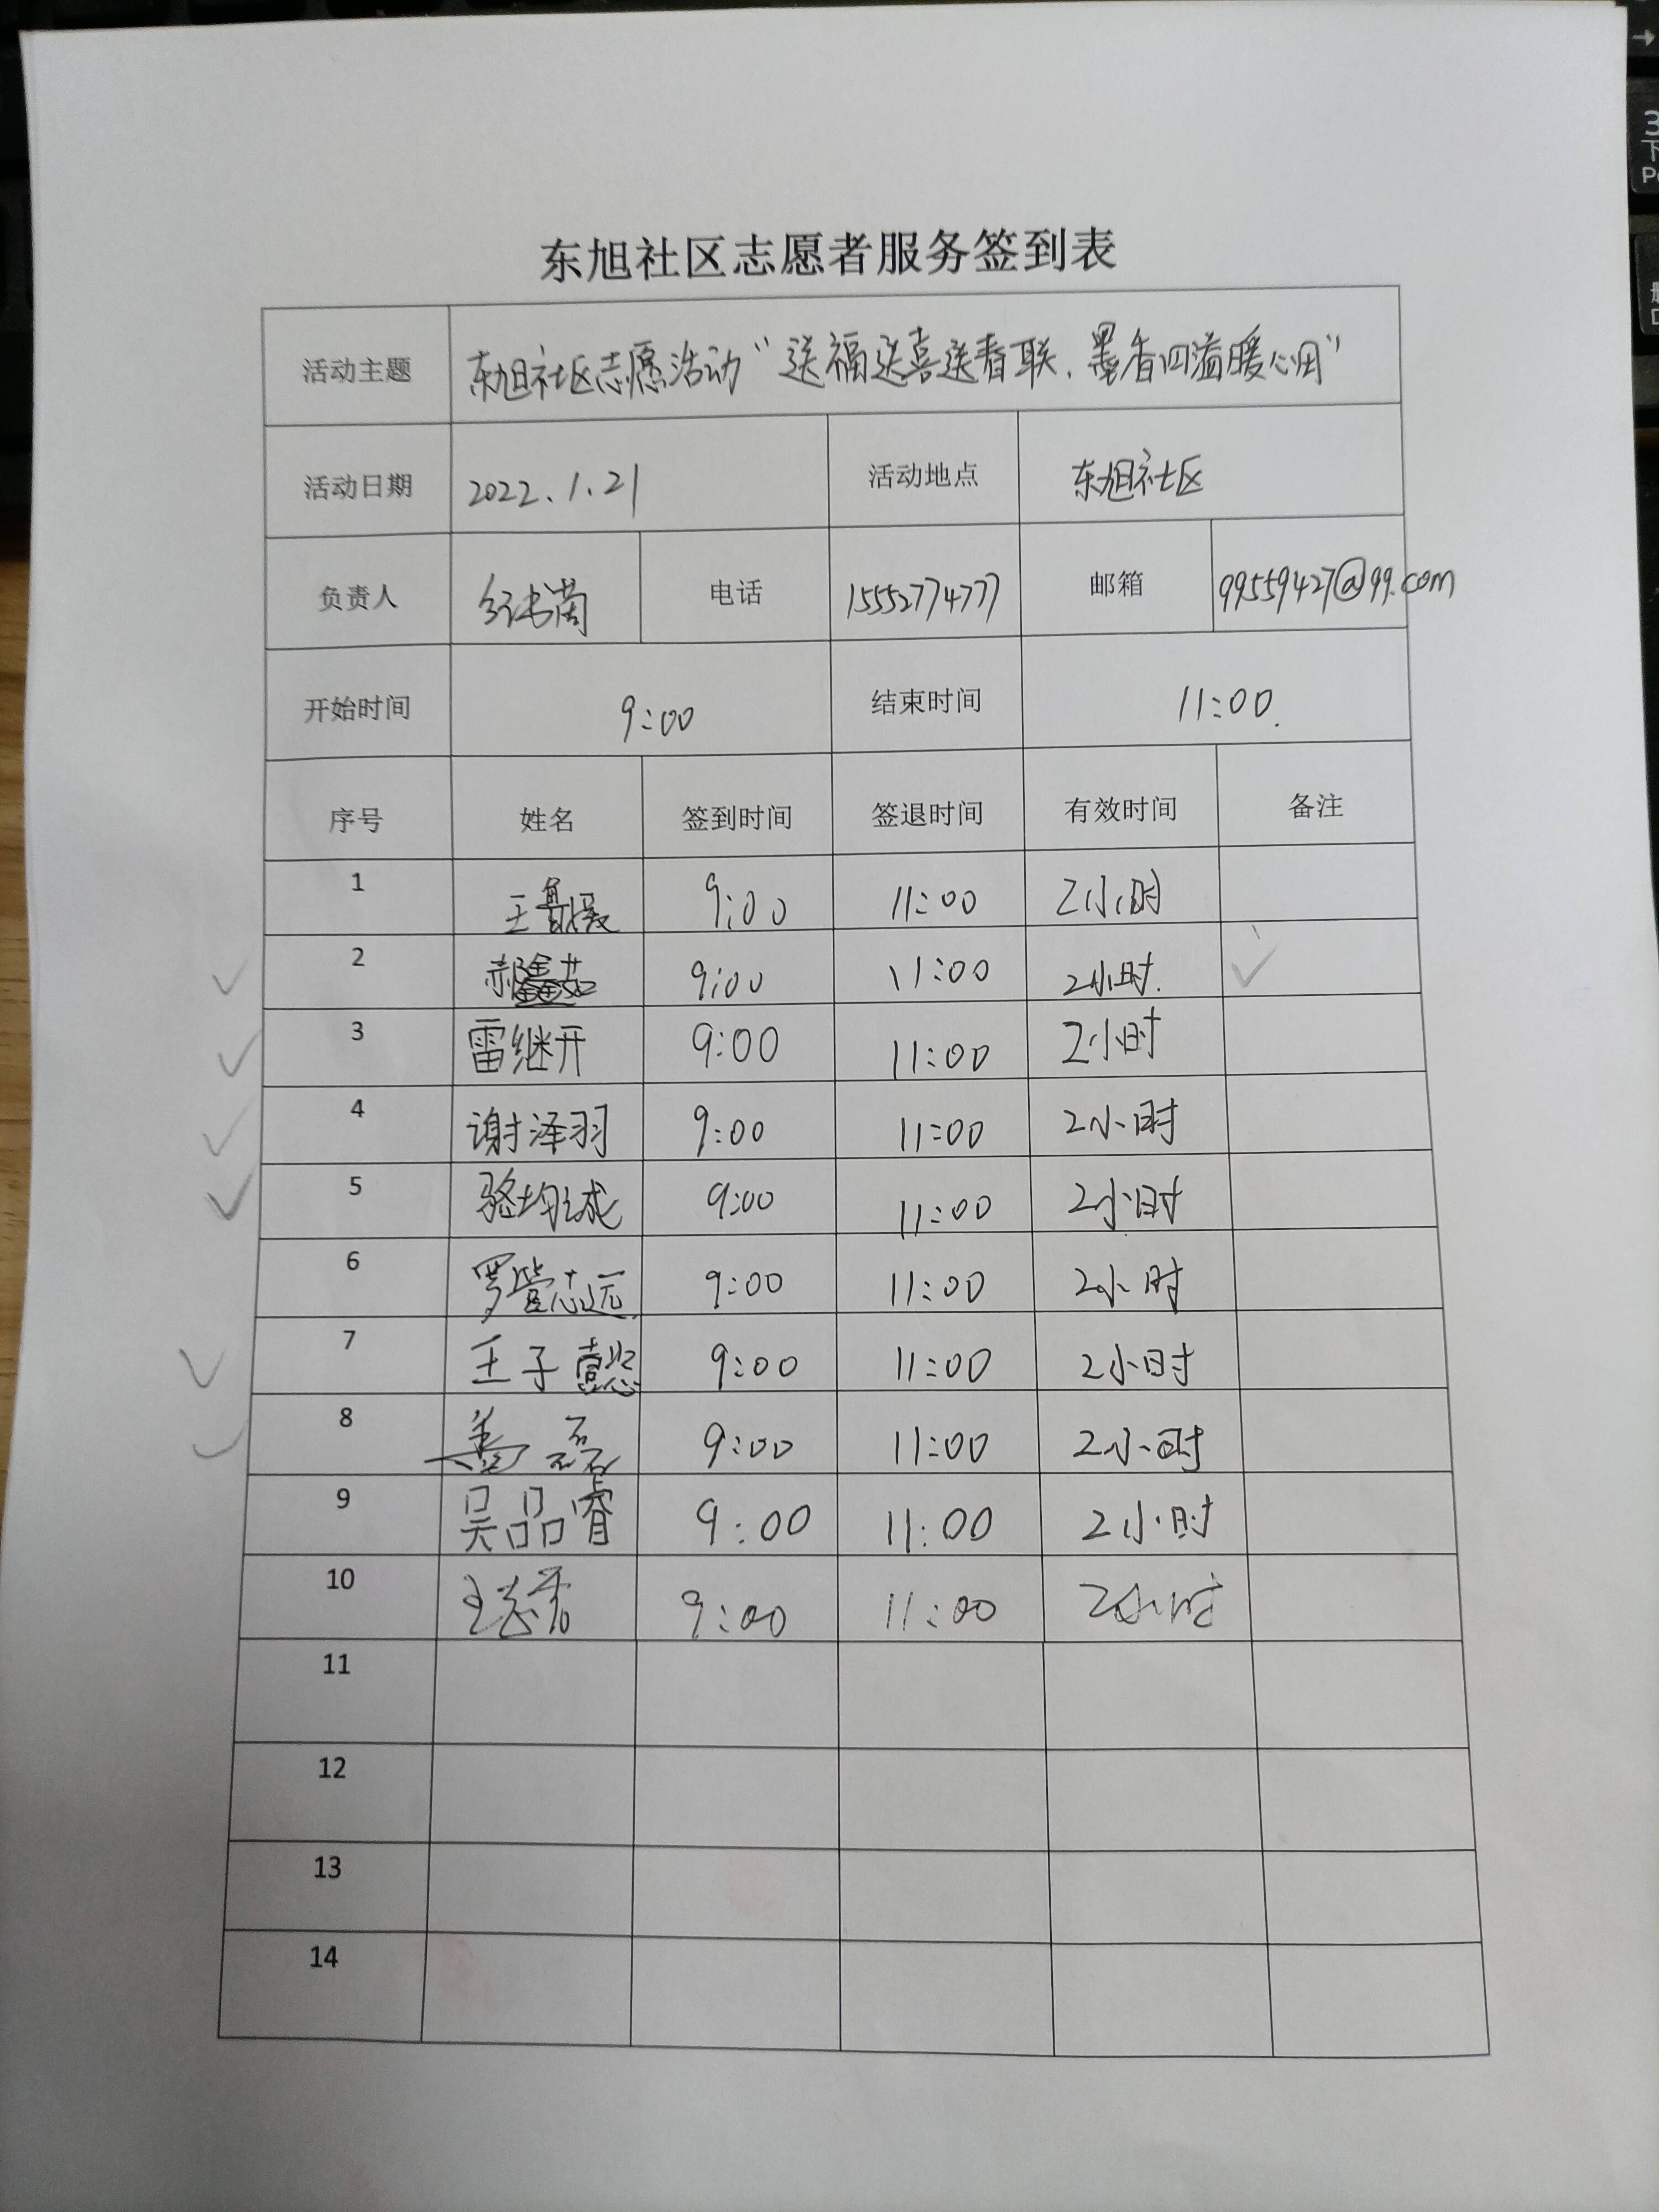 东旭社区志愿者服务签到表
活动主题 东旭社区志愿活动“送福送喜送春联，墨香四溢暖心田”
活动日期 2022.1.21 活动地点 东旭社区
负责人 电话 15552774777 邮箱 99559427@qq.com
开始时间 9:00 结束时间 11:00.
序号 姓名 签到时间 签退时间 有效时间 备注
1 王 9:00 11:00 2小时
2 郝鑫茹 9:00 11:00 2小时.
3 雷继开 9:00 11:00 2小时
4 谢泽羽 9:00 11:00 2小时
5 骆均成 9:00 11:00 2小时
6 罗管志远 9:00 11:00 2小时
7 王子懿 9:00 11:00 2小时
8 姜磊 9:00 11:00 2小时
9 吴品睿 9:00 11:00 2小时
10 王志 9:00 11:00 2小时
11
12
13
14